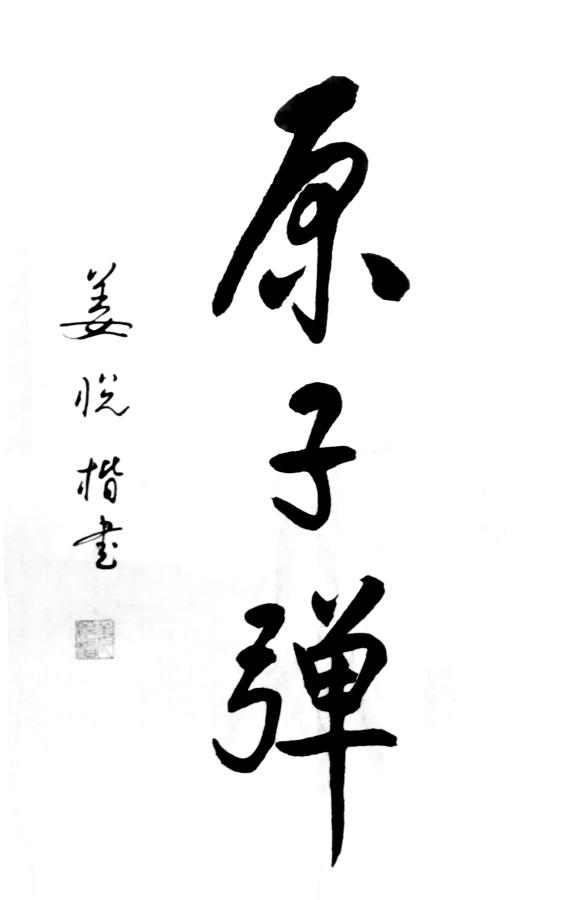 原子弹
姜悦楷书